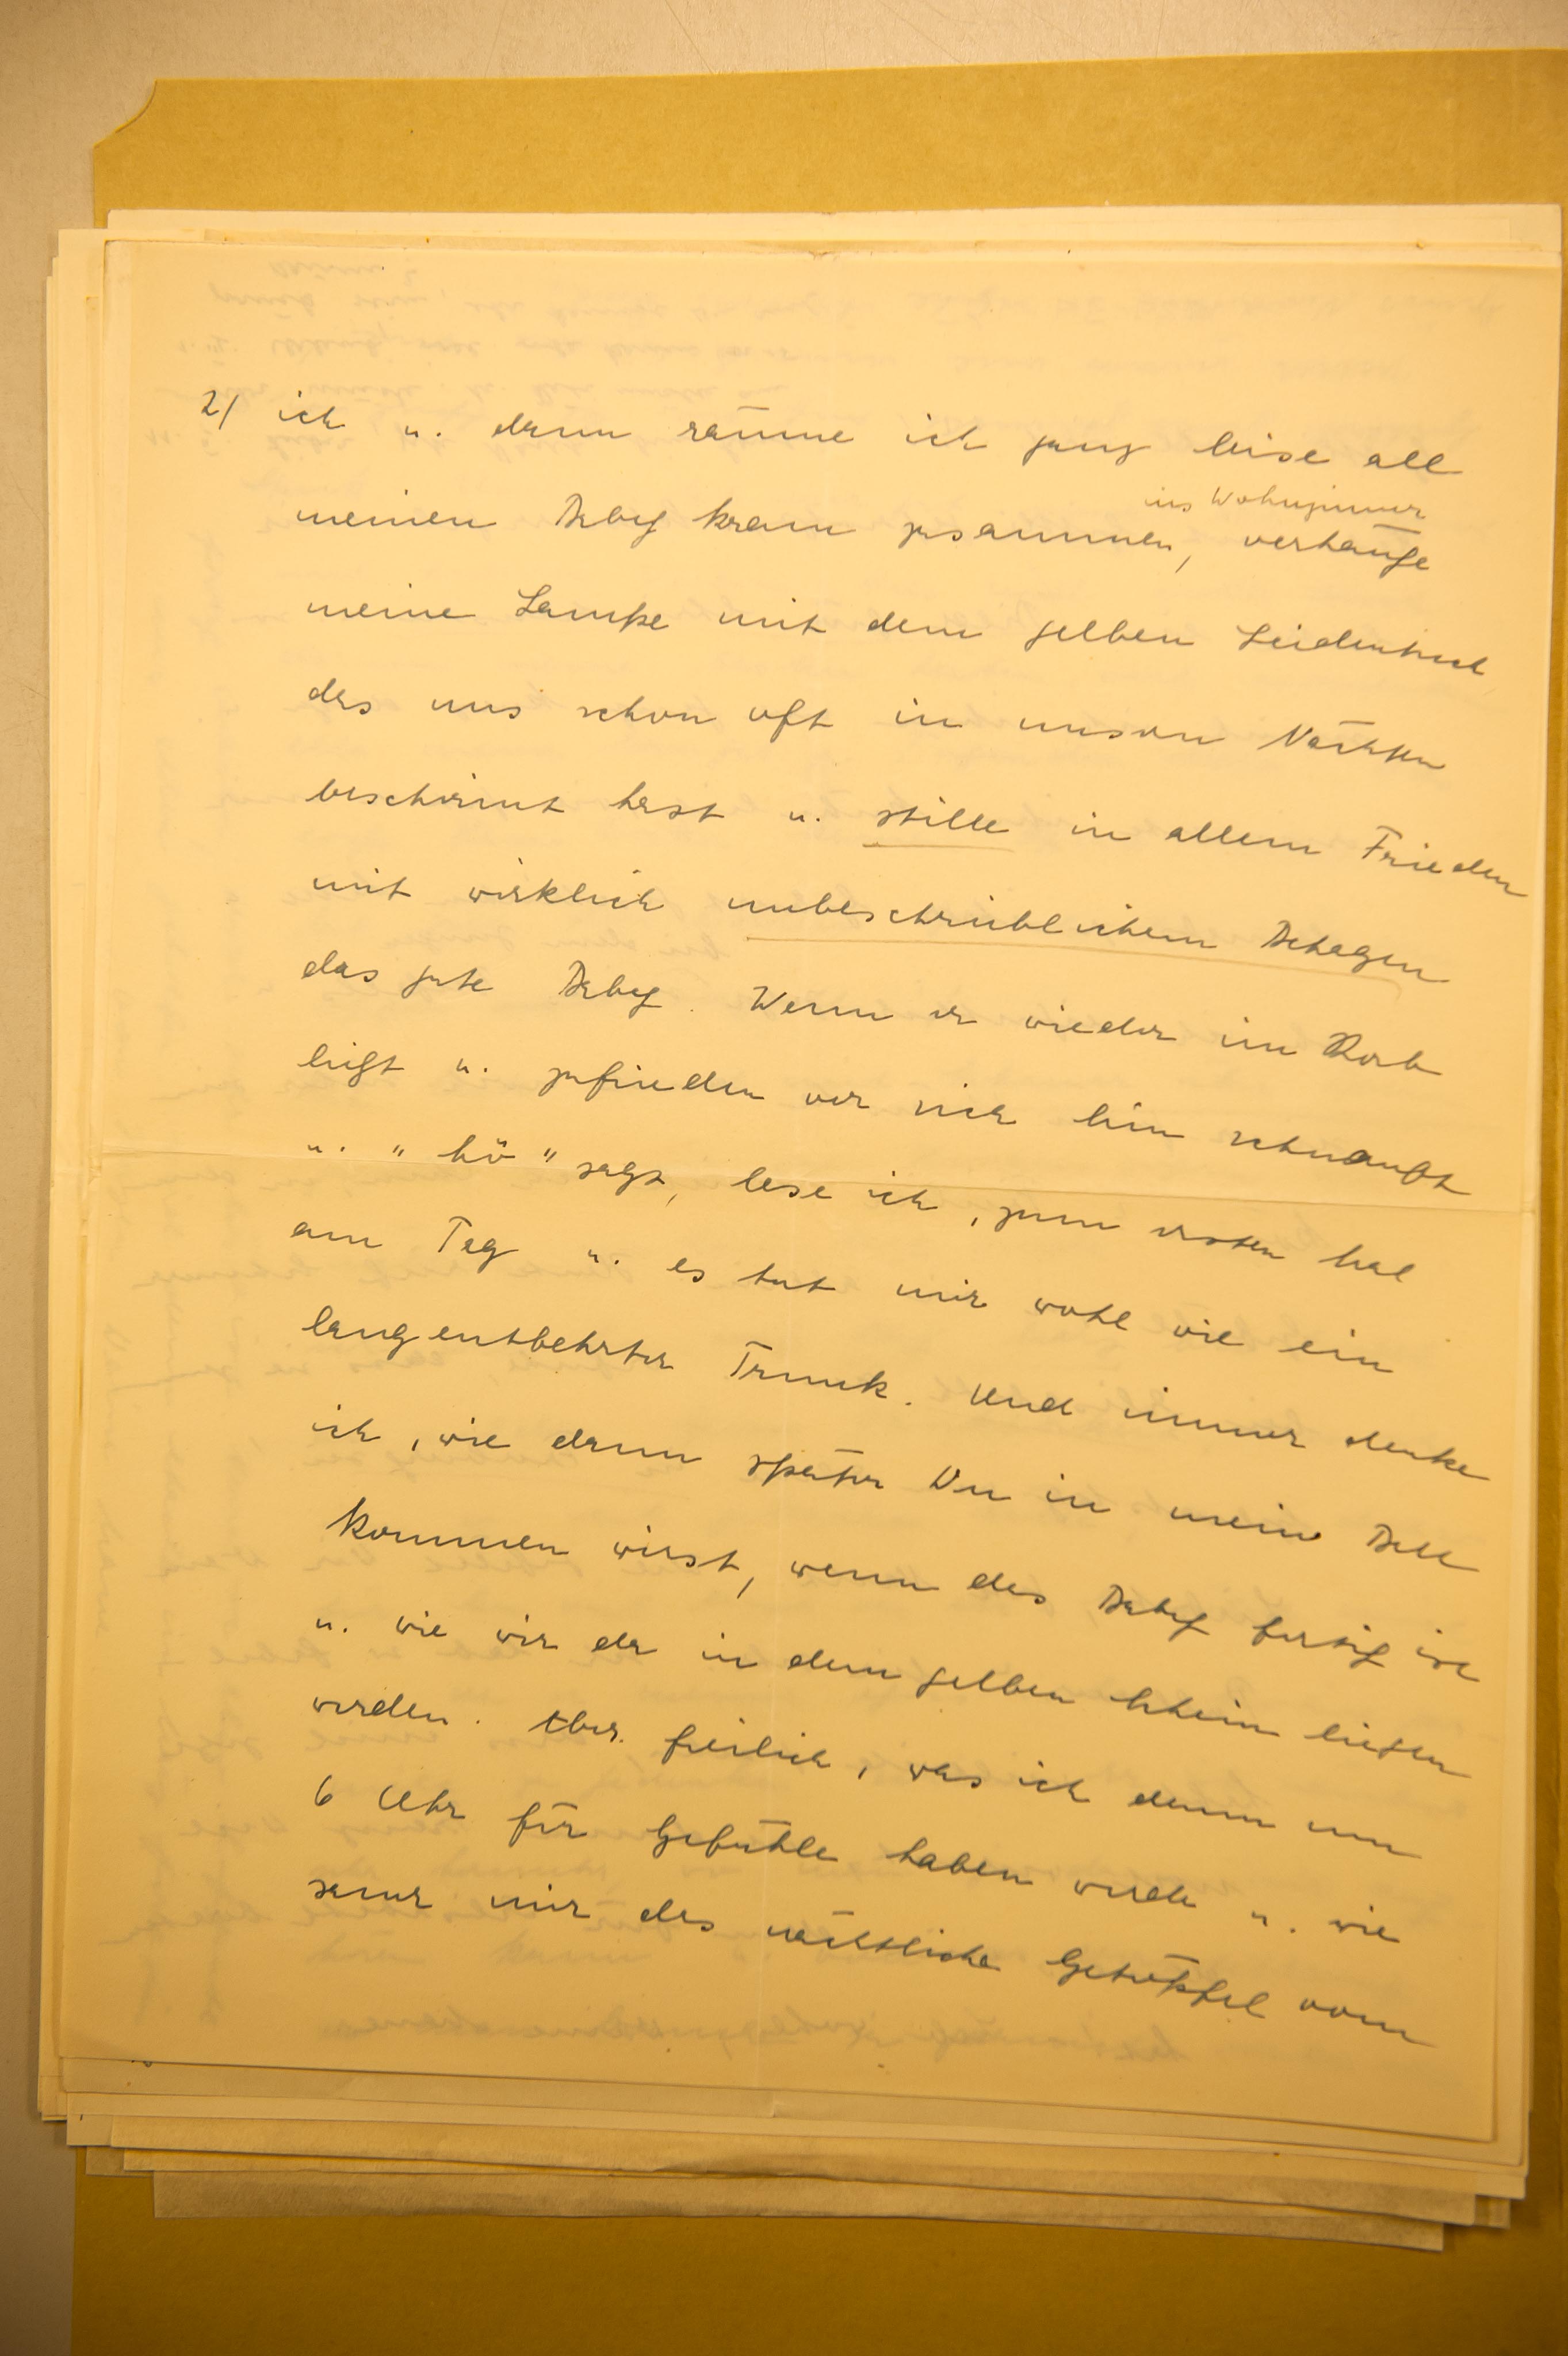 2/ ich u. dann räume ich ganz leise all
ins Wohnzimmer
meinen Baby kram zusammen, verhänge
meine Lampe mit dem gelben Seidentuch
das uns schon oft in unsern Nächten
beschirmt hast u. stille in allem Frieden
mit wirklich unbeschreiblichem Behagen
das gute Baby. Wenn er wieder im Korb
liegt u. zufrieden vor sich hin schnauft
u. "hö" sagt, lese ich, zum ersten Mal
am Tag u. es tut mir wohl wie ein
langentbehrter Trunk. Und immer denke
ich, wie dann später Du in mein Bett
kommen wirst, wenn das Baby fertig ist
u. wie wir da in dem gelben Schein liegen
werden. Aber freilich, was ich denn um
6 Uhr für Gefühle haben werde u. wie
sauer mir das nächtliche Getröpfel vom